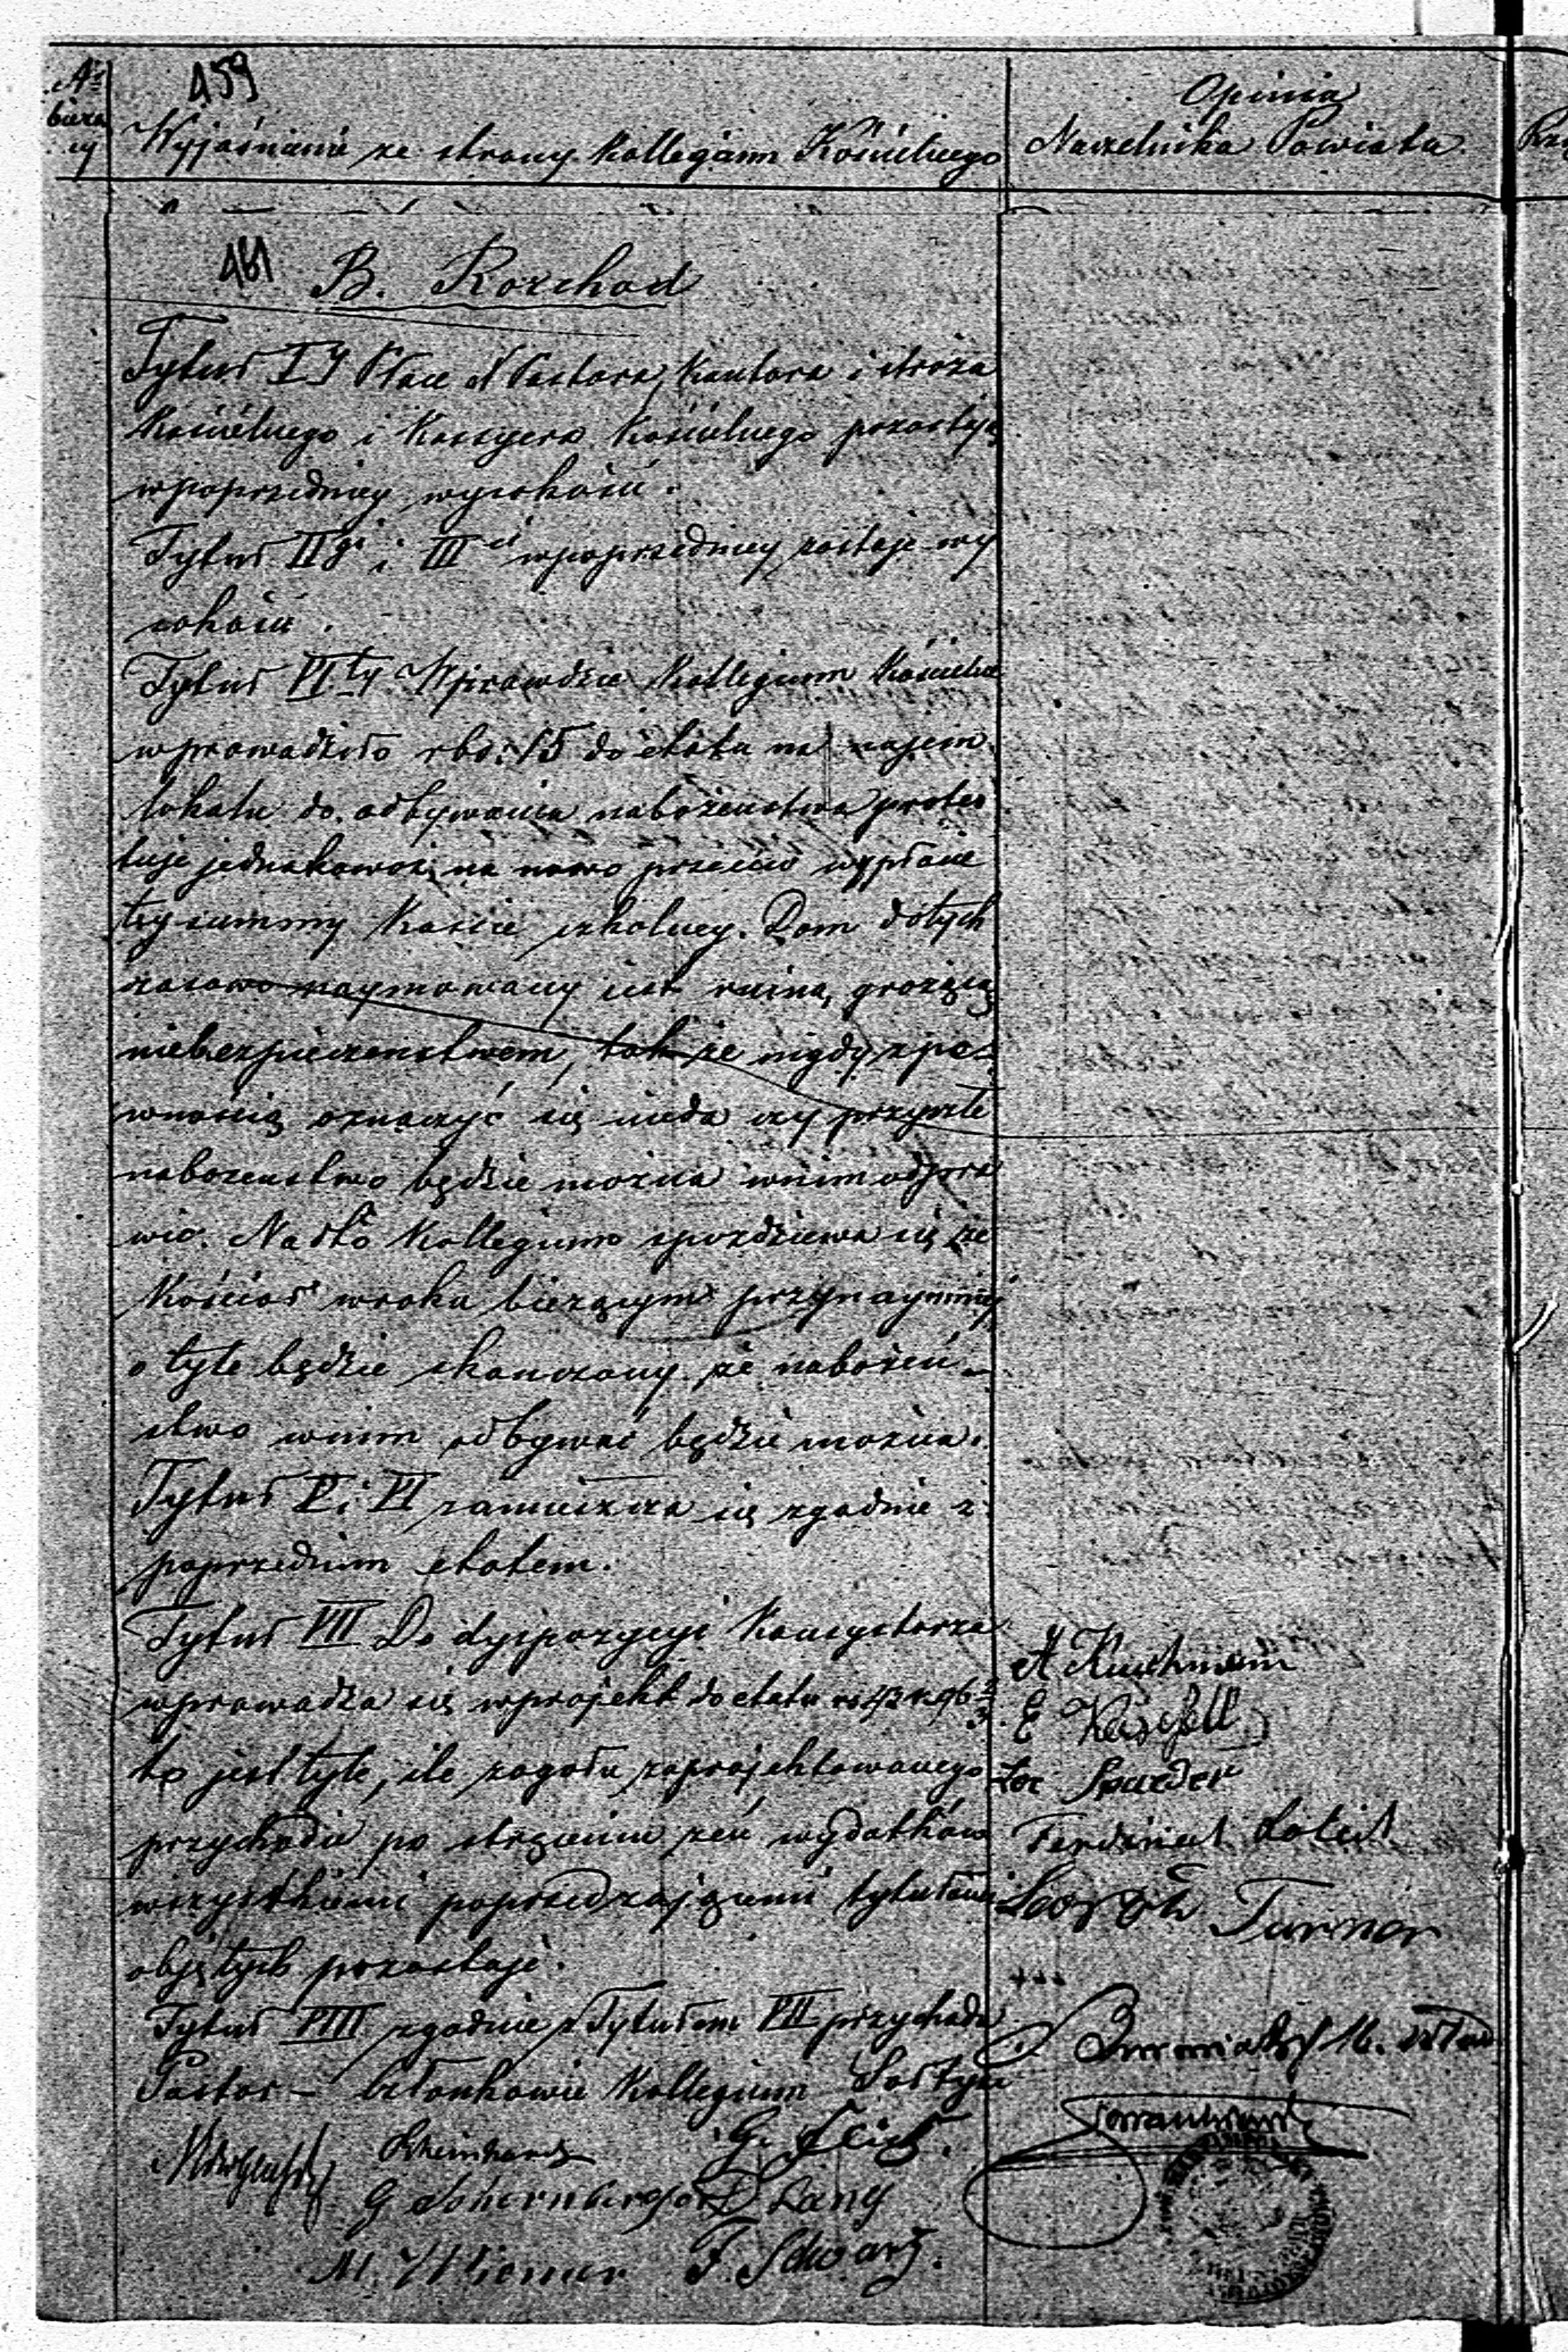 No
bieżą
cy
459
Wyjaśnienie ze strony Kollegium Kościelnego
Opinia
Naczelnika Powiatu
461
B. Rozchod
Tytuł Iy Płace Pastora, Kantora i stróża
Kościelnego i Kassyera Kościelnego pozostają
wpoprzedniey wysokości.
Tytuł IIgi i IIIci wpoprzedniey zostaje wy
sokości.
Tytuł VIty Wprawdzie Kollegium Kościelne
wprowadziło rbs. 15 do etatu na najem
lokalu do odbywania nabożeństwa protes
tuje jednakowoż na nowo przeciw wypłacie
tey summy Kassie szkolney. Dom dotych
czasowo naymowany jest ruiną, grożącą
niebezpieczeństwem, tak że nigdy zpe-
wnością oznaczyć się nieda czy przyszłe
nabożeństwo będzie można wnim odpra
wić. Nadto Kollegium spodziewa się że
Kościoł wroku bieżącym przynaymniej
o tyle będzie skończony że nabożeń-
stwo wnim odbywać będzie można.
Tytuł V i VI zamieszcza się zgodnie z
poprzednim etatem.
Tytuł VII Do dyspozycyi Konsystorza
wprowadza się wprojekt do etatu rs 42 k 96 2/3
to jest tyle, ile zogołu zaprojektowanego
przychodu po strąceniu zeń wydatków
wszystkiemi poprzedzającemi tytułami
objętych pozostaje.
Tytuł VIII zgodnie z Tytułem VII przychodu
Pastor – Członkowie Kollegium
G
Lang
M.
F. Schwarz.
A
E
Ferdinand
Turner
+++
16.